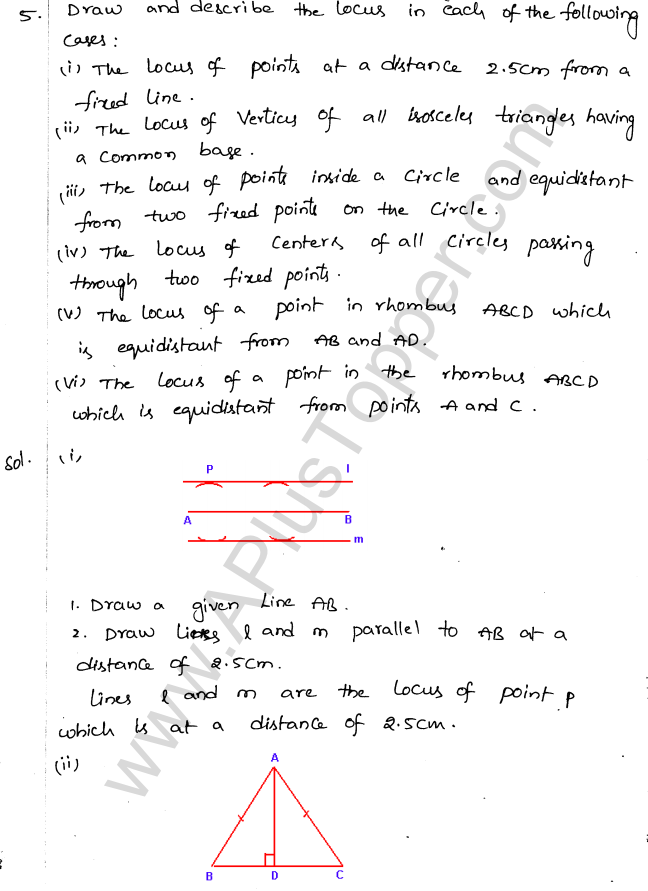 5. Draw and describe the locus in each of the following
cases :
(i) The locus of points at a distance 2.5cm from a
fixed line.
(ii) The locus of Verticy of all isosceles triangles having
a common base.
(iii) The locus of points inside a circle and equidistant
from two fixed points on the circle.
(iv) The locus of centers of all circles passing
through two fixed points.
(v) The locus of a point in rhombus ABCD which
is equidistant from AB and AD.
(vi) The locus of a point in the rhombus ABCD
which is equidistant from points A and C.
Sol. (i)
P l
A B
m
1. Draw a given line AB.
2. Draw lines l and m parallel to AB at a
distance of 2.5cm.
Lines l and m are the locus of point P
which is at a distance of 2.5cm.
(ii)
A
B D C
www.APlusTopper.com